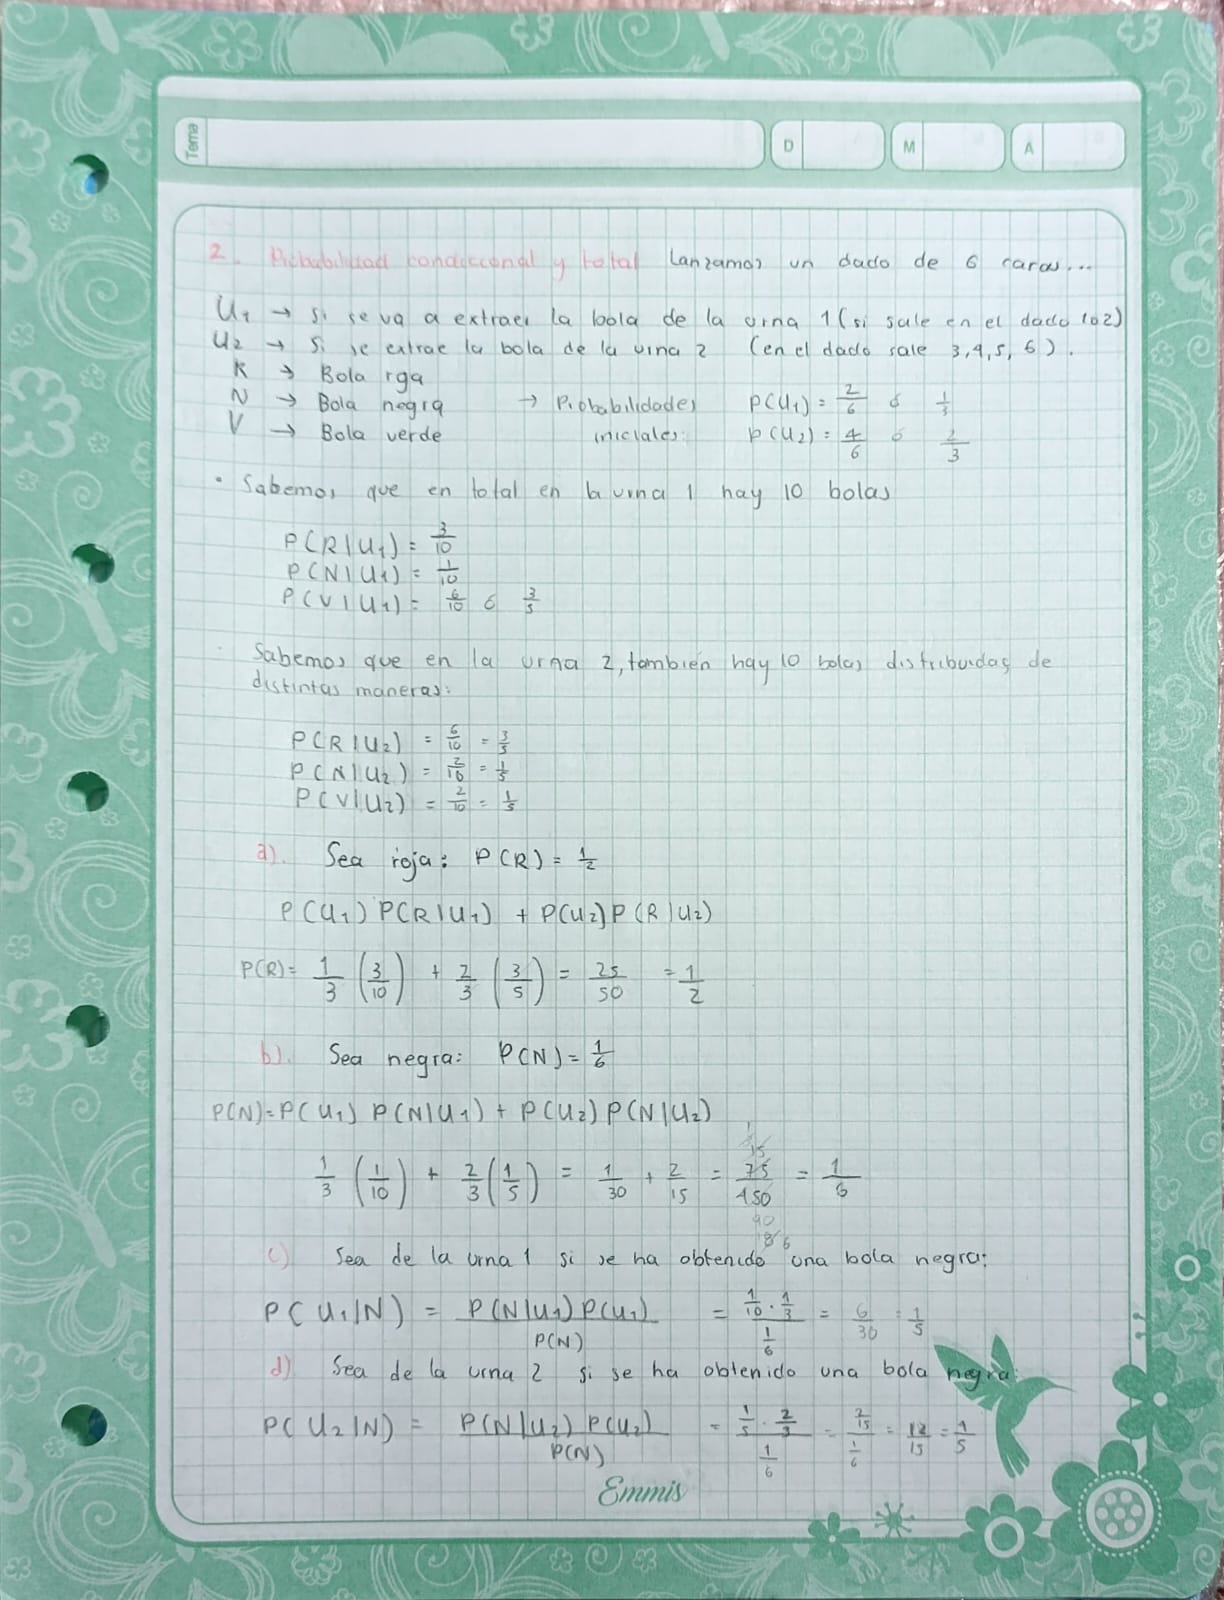 Tema
D
M
A
2. Probabilidad condiccional y total Lanzamos un dado de 6 caras...
U₁ → si se va a extraer la bola de la urna 1 (si sale en el dado 1 o 2)
U₂ → Si se extrae la bola de la urna 2 (en el dado sale 3,4,5,6).
R → Bola roja
N → Bola negra → Probabilidades P(U₁) = 2/6 ó 1/3
V → Bola verde iniciales: P(U₂) = 4/6 ó 2/3
• Sabemos que en total en la urna 1 hay 10 bolas
P(R|U₁) = 3/10
P(N|U₁) = 1/10
P(V|U₁) = 6/10 ó 3/5
· Sabemos que en la urna 2, también hay 10 bolas distribuidas de
distintas maneras:
P(R|U₂) = 6/10 = 3/5
P(N|U₂) = 2/10 = 1/5
P(V|U₂) = 2/10 = 1/5
a). Sea roja: P(R) = 1/2
P(U₁) P(R|U₁) + P(U₂) P(R|U₂)
P(R) = 1/3 (3/10) + 2/3 (3/5) = 25/50 = 1/2
b). Sea negra: P(N) = 1/6
P(N) = P(U₁) P(N|U₁) + P(U₂) P(N|U₂)
1/3 (1/10) + 2/3 (1/5) = 1/30 + 2/15 = 75/450 = 1/6
c) Sea de la urna 1 si se ha obtenido una bola negra:
P(U₁|N) = P(N|U₁) P(U₁) / P(N) = 1/10 · 1/3 / 1/6 = 6/30 = 1/5
d) Sea de la urna 2 si se ha obtenido una bola negra:
P(U₂|N) = P(N|U₂) P(U₂) / P(N) = 1/5 · 2/3 / 1/6 = 2/15 / 1/6 = 12/15 = 4/5
Emmis